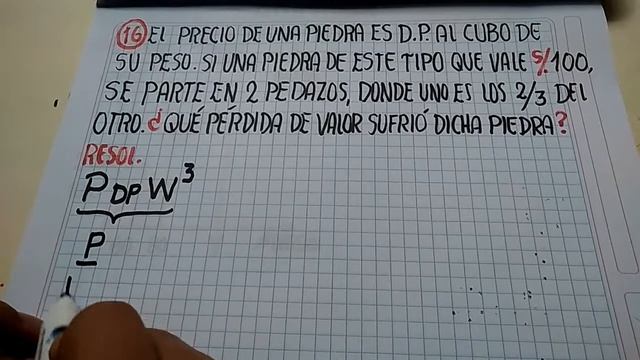 16 EL PRECIO DE UNA PIEDRA ES D.P. AL CUBO DE
SU PESO. SI UNA PIEDRA DE ESTE TIPO QUE VALE S/.100,
SE PARTE EN 2 PEDAZOS, DONDE UNO ES LOS 2/3 DEL
OTRO. ¿QUÉ PÉRDIDA DE VALOR SUFRIÓ DICHA PIEDRA?
RESOL.
P DP W³
P